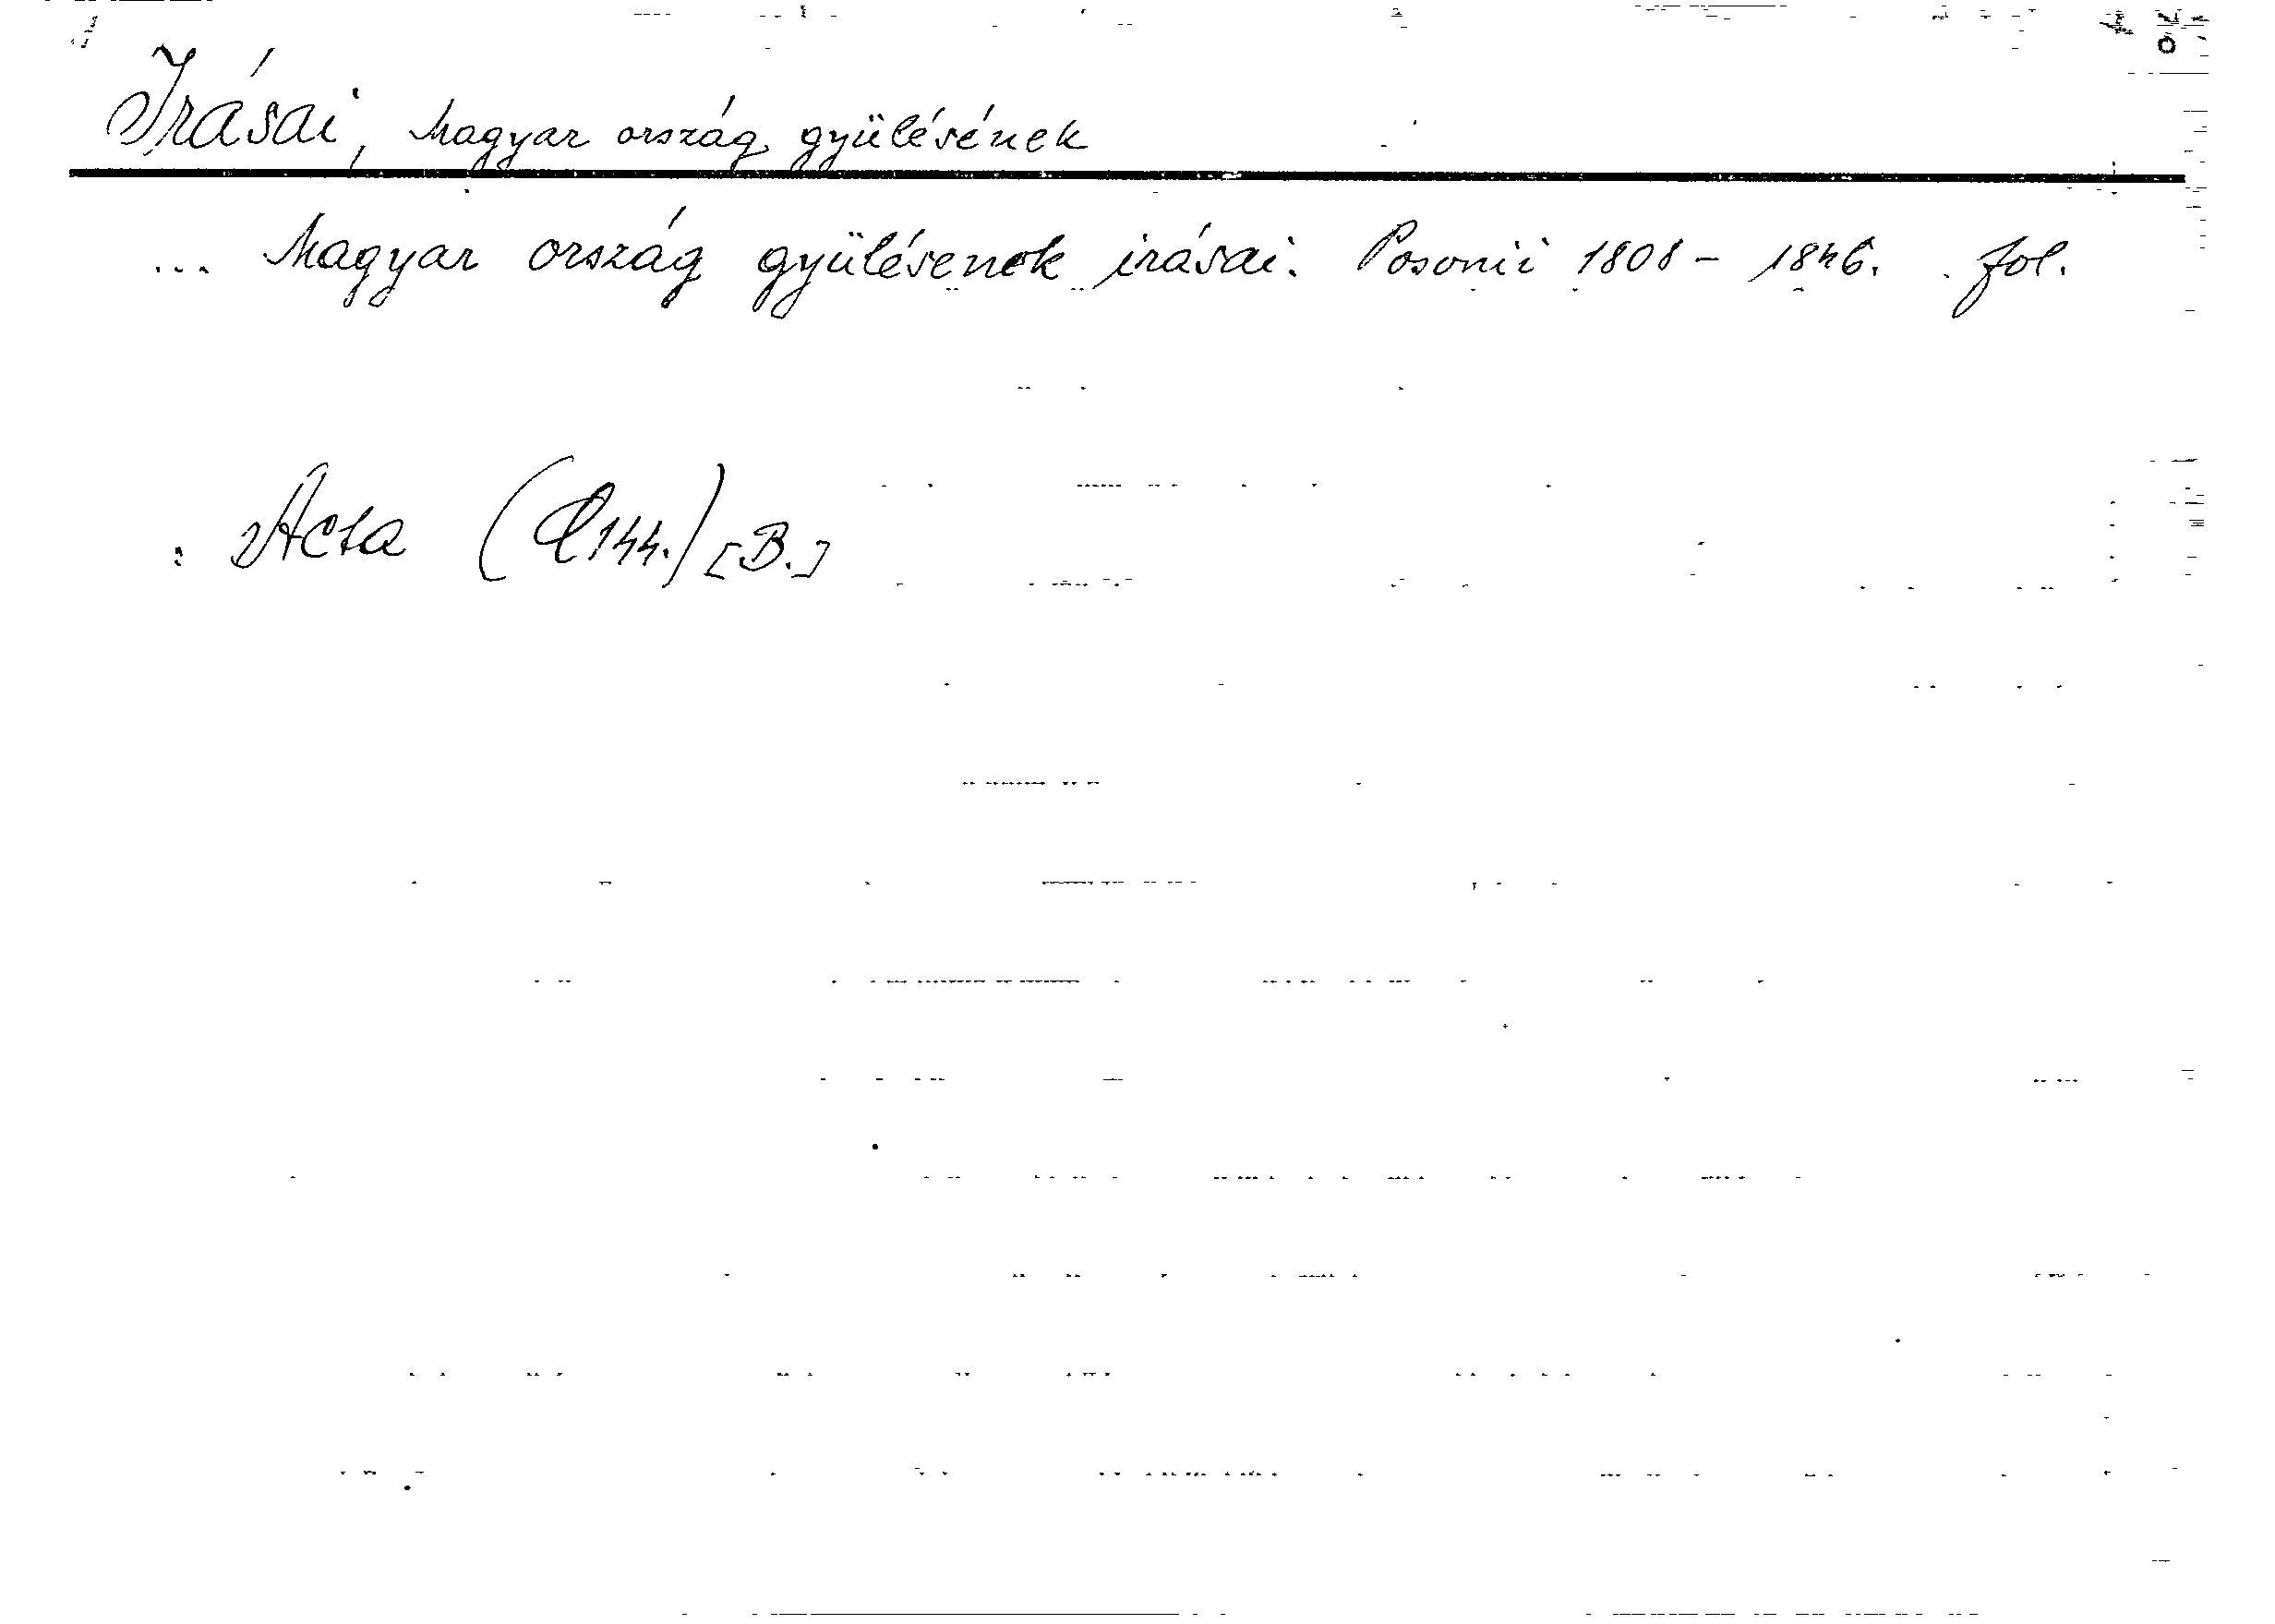 Irásai, Magyar ország gyülésének
... Magyar ország gyülésenek irásai. Posonii 1808 - 1846. fol.
: Acta (Q144.) [B.]